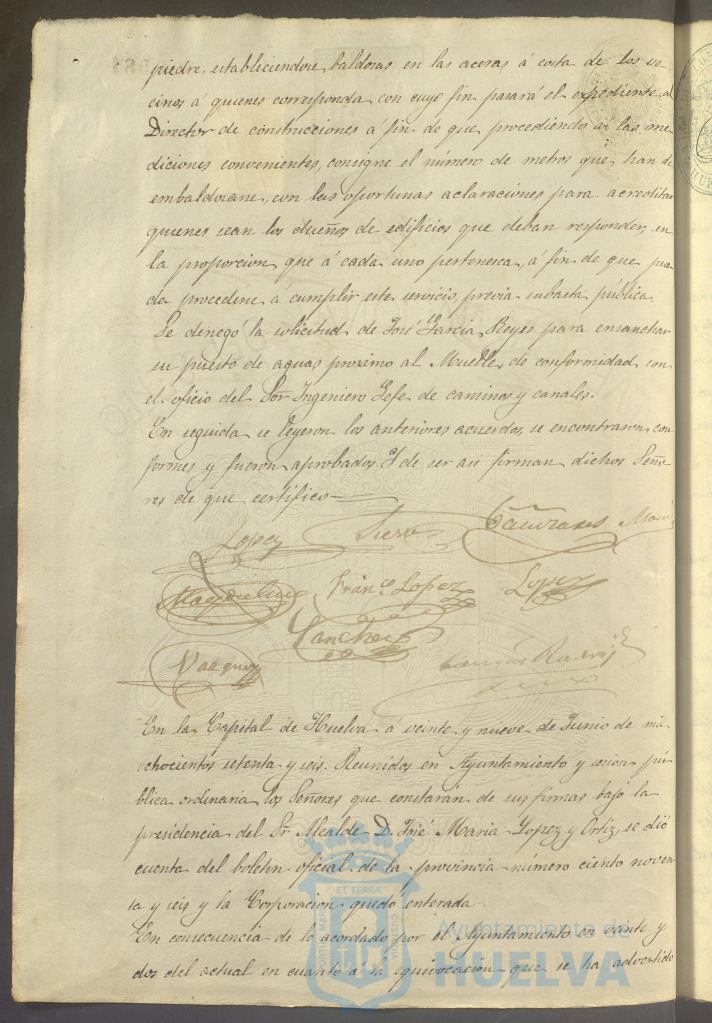 piedre, estableciendose baldosas en las aceras á costa de los ve-
cinos á quienes corresponda con cuyo fin pasará el expediente al
Director de construcciones á fin de que procediendo á las me
diciones convenientes, consigne el número de metros que han de
embaldosarse, con las oportunas aclaraciones para acreditar
quienes sean los dueños de edificios que deban responder, en
la proporcion que á cada uno pertenesca, á fin de que pue
da procederse á cumplir este servicio, previa subasta pública
Se denegó la solicitud de José Garcia Reyes para ensanchar
su puesto de aguas proximo al Muelle, de conformidad con
el oficio del Sor Ingeniero Gefe de caminos y canales.
En seguida se leyeron los anteriores acuerdos, se encontraron con
formes y fueron aprobados. Y de ser asi firman dichos Seño
res de que certifico
Lopez
Franco Lopez Lopez
Sanchez
Vazquez
En la Capital de Huelva á veinte y nueve de Junio de mil
ochocientos setenta y seis. Reunidos en Ayuntamiento y sesion pú
blica ordinaria los Señores que constarán de sus firmas bajo la
presidencia del Sr Alcalde D. José Maria Lopez y Ortiz, se dió
cuenta del boletin oficial de la provincia número ciento noven
ta y seis y la Corporacion quedó enterada
En consecuencia de lo acordado por el Ayuntamiento en veinte y
dos del actual en cuanto á la equivocacion que se ha advertido
Ayuntamiento de
HUELVA